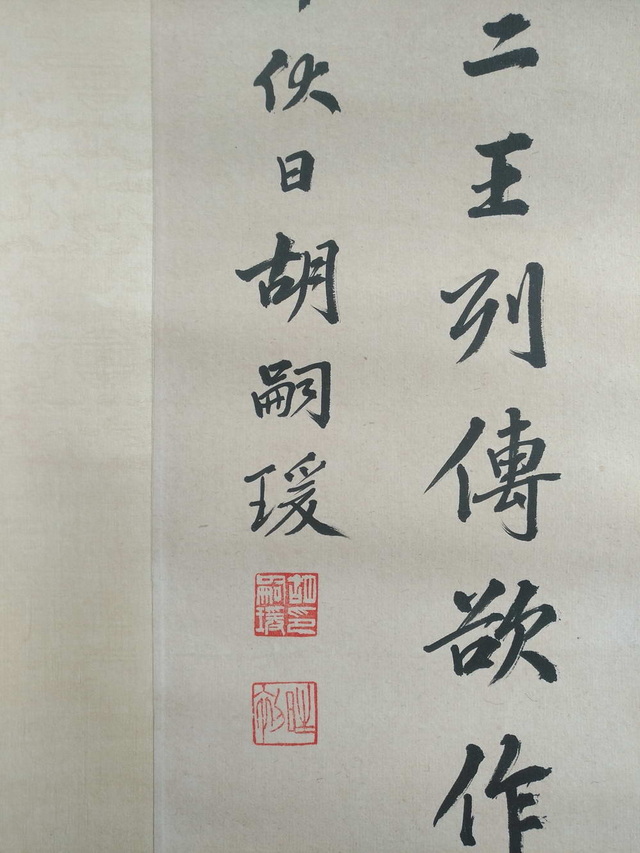 二王列傳欲作
伏日胡嗣瑗
胡印嗣瑗